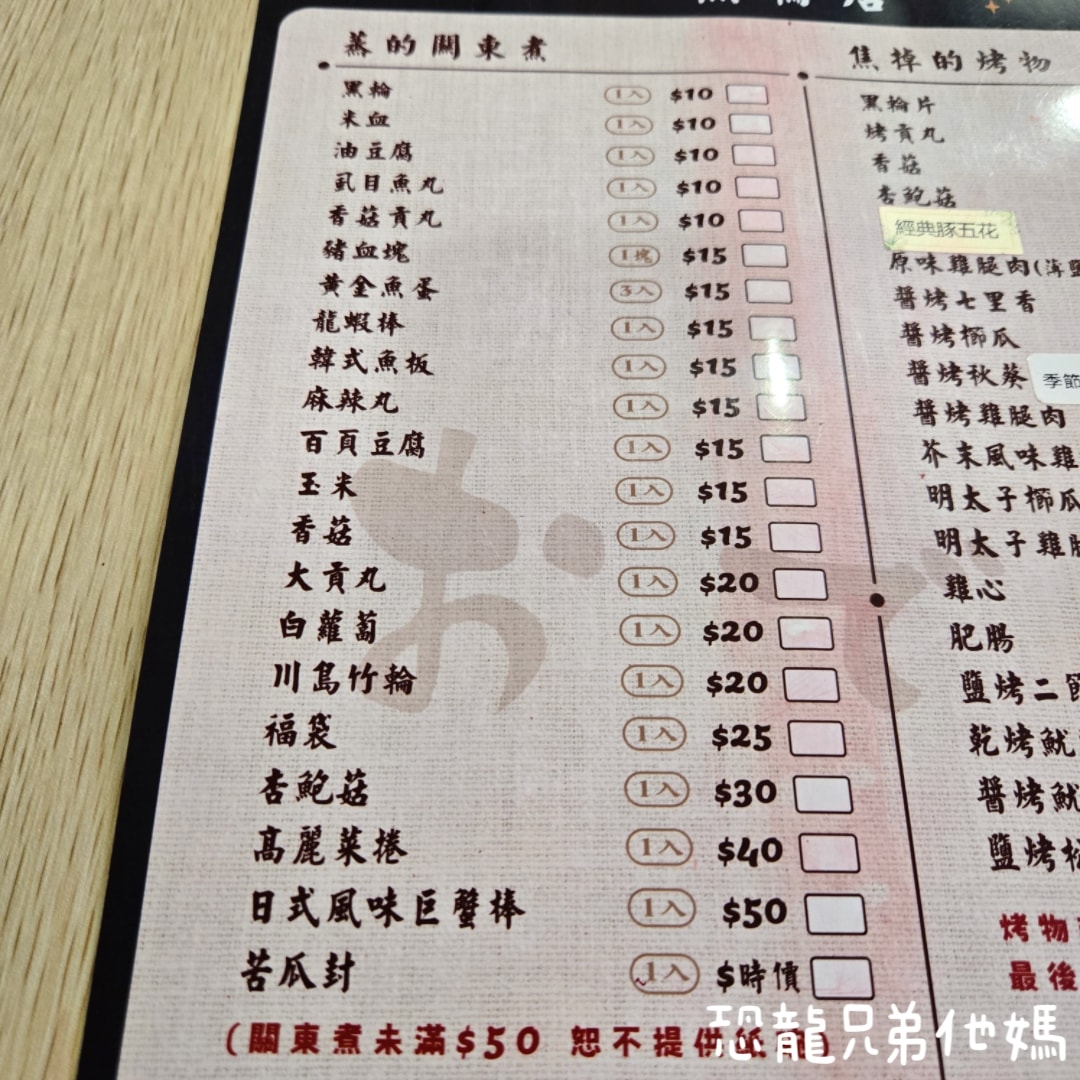 蒸的關東煮
黑輪 1入 $10
米血 1入 $10
油豆腐 1入 $10
虱目魚丸 1入 $10
香菇貢丸 1入 $10
豬血塊 1塊 $15
黃金魚蛋 3入 $15
龍蝦棒 1入 $15
韓式魚板 1入 $15
麻辣丸 1入 $15
百頁豆腐 1入 $15
玉米 1入 $15
香菇 1入 $15
大貢丸 1入 $20
白蘿蔔 1入 $20
川島竹輪 1入 $20
福袋 1入 $25
杏鮑菇 1入 $30
高麗菜捲 1入 $40
日式風味巨蟹棒 1入 $50
苦瓜封 1入 $時價
(關東煮未滿$50 恕不提供
焦掉的烤物
黑輪片
烤貢丸
香菇
杏鮑菇
經典豚五花
原味雞腿肉(薄鹽
醬烤七里香
醬烤櫛瓜
醬烤秋葵 季節
醬烤雞腿肉
芥末風味雞
明太子櫛瓜
明太子雞腿
雞心
肥腸
鹽烤二節
乾烤魷
醬烤魷
鹽烤松
烤物
最後
お
恐龍兄弟他媽